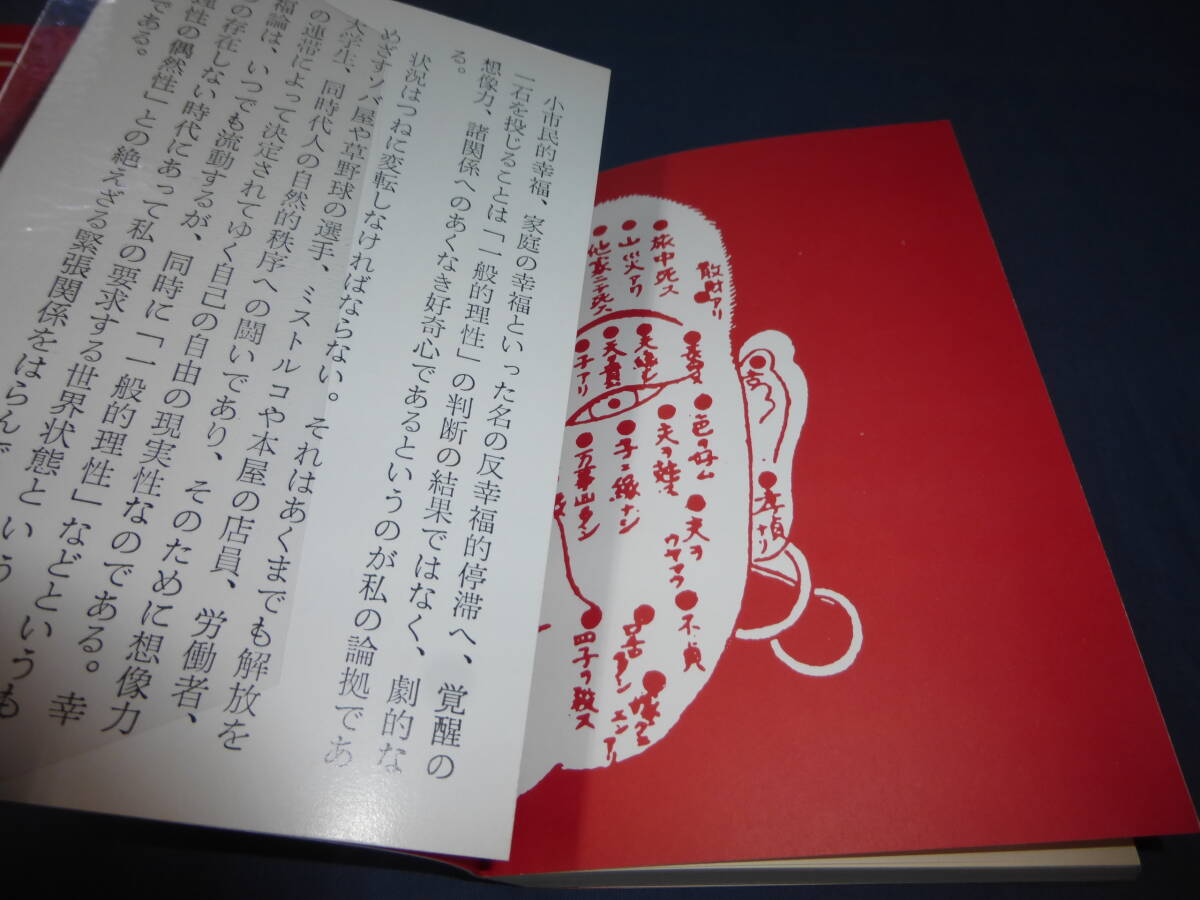 小市民的幸福、家庭の幸福といった名の反幸福的停滞へ、覚醒の
一石を投じることは「一般的理性」の判断の結果ではなく、劇的な
想像力、諸関係へのあくなき好奇心であるというのが私の論拠であ
る。
状況はつねに変転しなければならない。それはあくまでも解放を
めざすソバ屋や草野球の選手、ミストルコや本屋の店員、労働者、
大学生、同時代人の自然的秩序への闘いであり、そのために想像力
の連帯によって決定されてゆく自己の自由の現実性なのである。幸
福論は、いつでも流動するが、同時に「一般的理性」などというも
の存在しない時代にあって私の要求する世界状態という
理性の偶然性」との絶えざる緊張関係をはらんで
である。
散財アリ
旅中死ス
山災アリ
他家ニテ死ス
子アリ
吉
孝貞ナリ
色ヲ好ム
夫ヲ
子ニ縁ナシ
不貞
四子ヲ殺ス